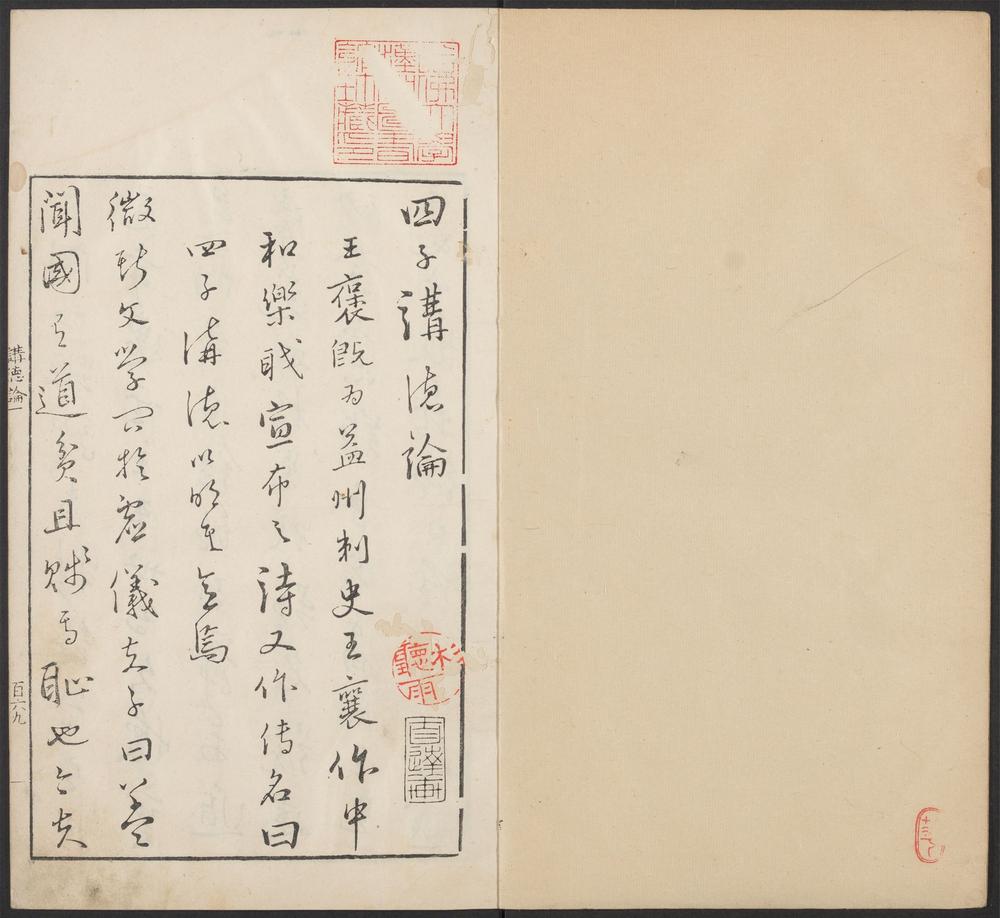 四子講德論
王褒既為益州刺史王襄作中
和樂職宣布之詩又作傳名曰
四子講德以明其意焉
微斯文學問於虛儀夫子曰蓋
聞國有道貧且賤焉恥也今夫
講德論
百六九